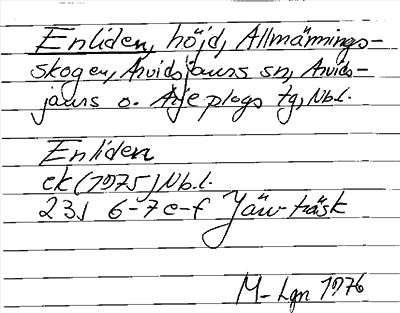 Enliden, höjd, Allmännings-
skogen, Arvidsjaurs sn, Arvids-
jaurs o. Arjeplogs tg, Nb.l.
Enliden
ek (1975) Nb.l.
23J 6-7e-f Järvträsk
M-Lgn 1976